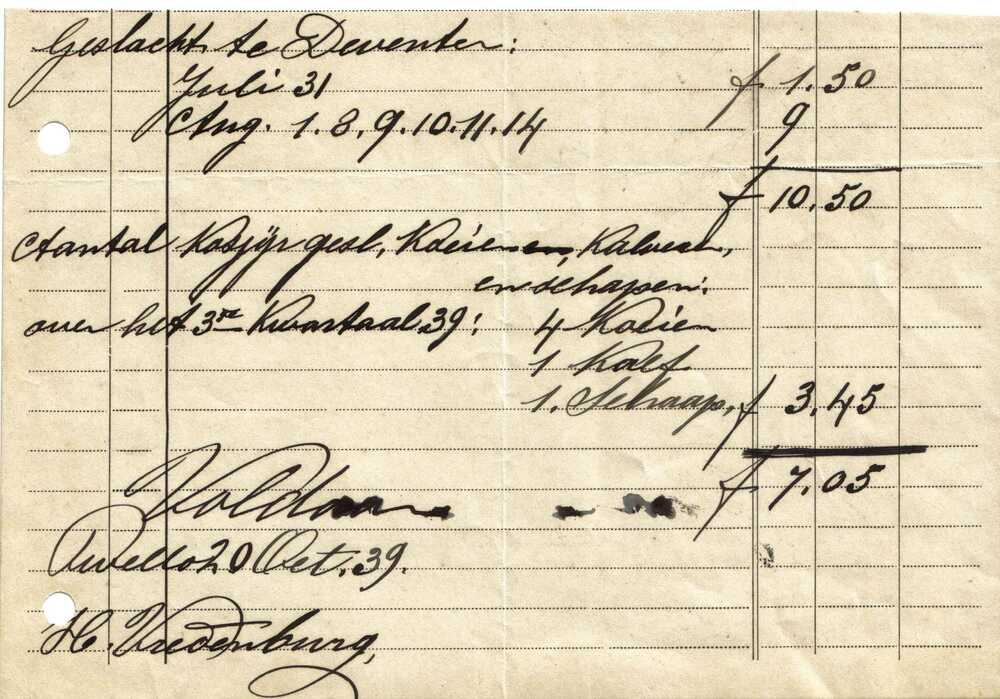 Geslacht te Deventer:
Juli 31 f 1.50
Aug. 1. 8, 9. 10. 11. 14 9
f 10.50
Aantal Kosjyr gesl, Koeien, Kalveren,
en schapen:
over het 3de Kwartaal 39: 4 Koeien
1 Kalf
1. Schaap, f 3.45
f 7.05
Voldaan
Twello 20 Oct. 39.
H. Vredenburg,